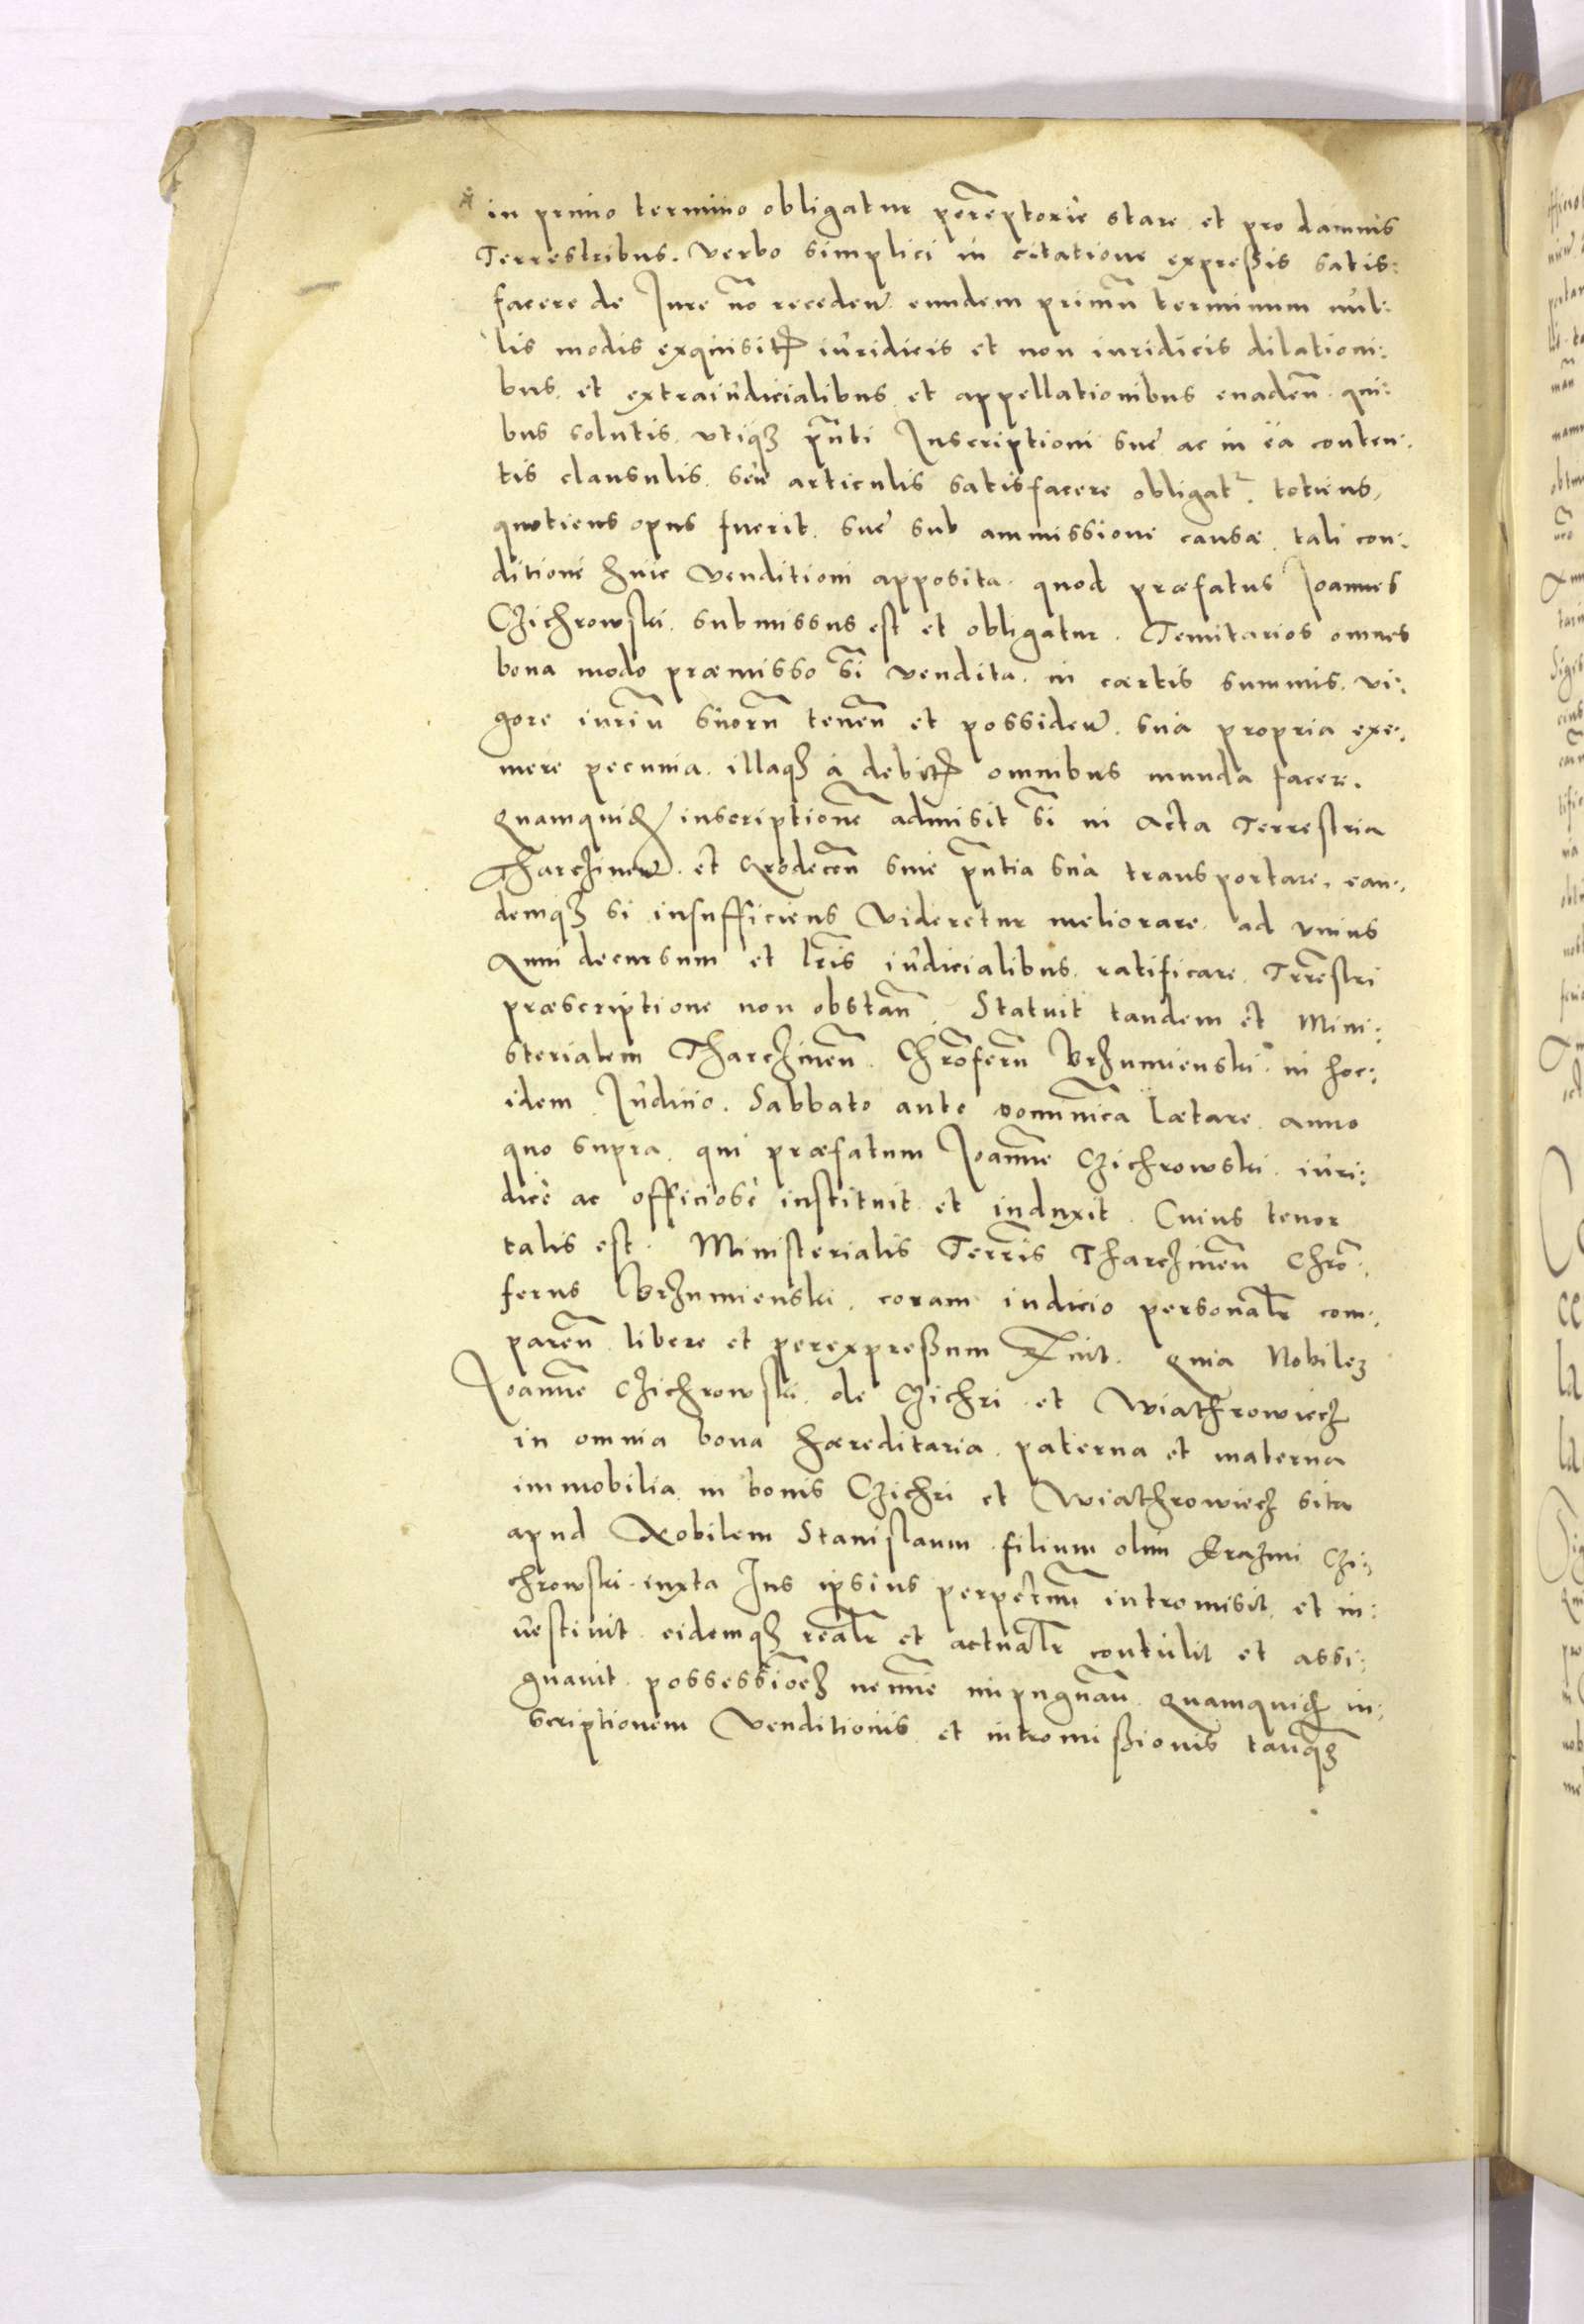 in primo termino obligatur perēptorie stare et pro damnis
Terrestribus. verbo simplici in citatione expreßis satis:
facere de Jure nō receden̄. eundem primū terminum nul:
lis modis exquisitꝭ iuridicis et non iuridicis dilationi:
bus. et extraiudicialibus et appellationibus euaden̄. qui:
bus solutis. vtiqꝫ pn̄ti Inscriptioni suæ ac in ea conten:
tis clausulis. seu articulis satisfacere obligatʳ. totiens,
quotiens opus fuerit. sue sub ammissione causæ. tali con:
ditione huic venditioni apposita. quod præfatus Joannes
Czichrowski. submissus est et obligatur. Tenutarios omnes
bona modo præmisso si vendita. in cærtis summis. vi:
gore iuriū suorū tenen̄ et possiden̄. sua propria exe:
mere pecunia. illaqꝫ a debitꝭ omnibus munda facere.
Quamquidꝫ inscriptionē admisit si in Acta Terrestria
Tharczinen̄. et Grodecen̄ siue pn̄tia sua transportare. ean:
demqꝫ si insufficiens videretur meliorare. ad vnius
Anni decursum et lr̄is iudicialibus. ratificare. Trr̄estri
præscriptione non obstan̄. Statuit tandem et Mini:
sterialem Tharczinen̄. Chrōferū Brzumienski. in hoc:
idem Judicio. Sabbato ante dominīca Lætare. anno
quo supra. qui præfatum Joannē Czichrowski. iuri:
dicè ac officiosè instituit et induxit. Cuius tenor
talis est. Ministerialis Terrīs Tharczinen̄ Chrō:
ferus Brzumienski. coram iudicio personalr̄ com:
paren̄. libere et per expreßum quia Nobilеꝫ
Joannē Czichrowski. de Czichri et Wiathrowiecz
in omnia bona hæreditaria. paterna et materna
immobilia in bonis Czichri et Wiathrowiecz sita
apud Nobilem Stanislaum filium olim Erazmi Czi:
chrowski. iuxta Ius ipsius perpetuū intromisit. et in:
uestiuit. eidemqꝫ realr̄ et actualr̄ contulit et assi:
gnauit. possessiōeꝫ nemīe impugnan̄. Quamquidꝫ in:
scriptionem venditionis et intromißionis tanqꝫ